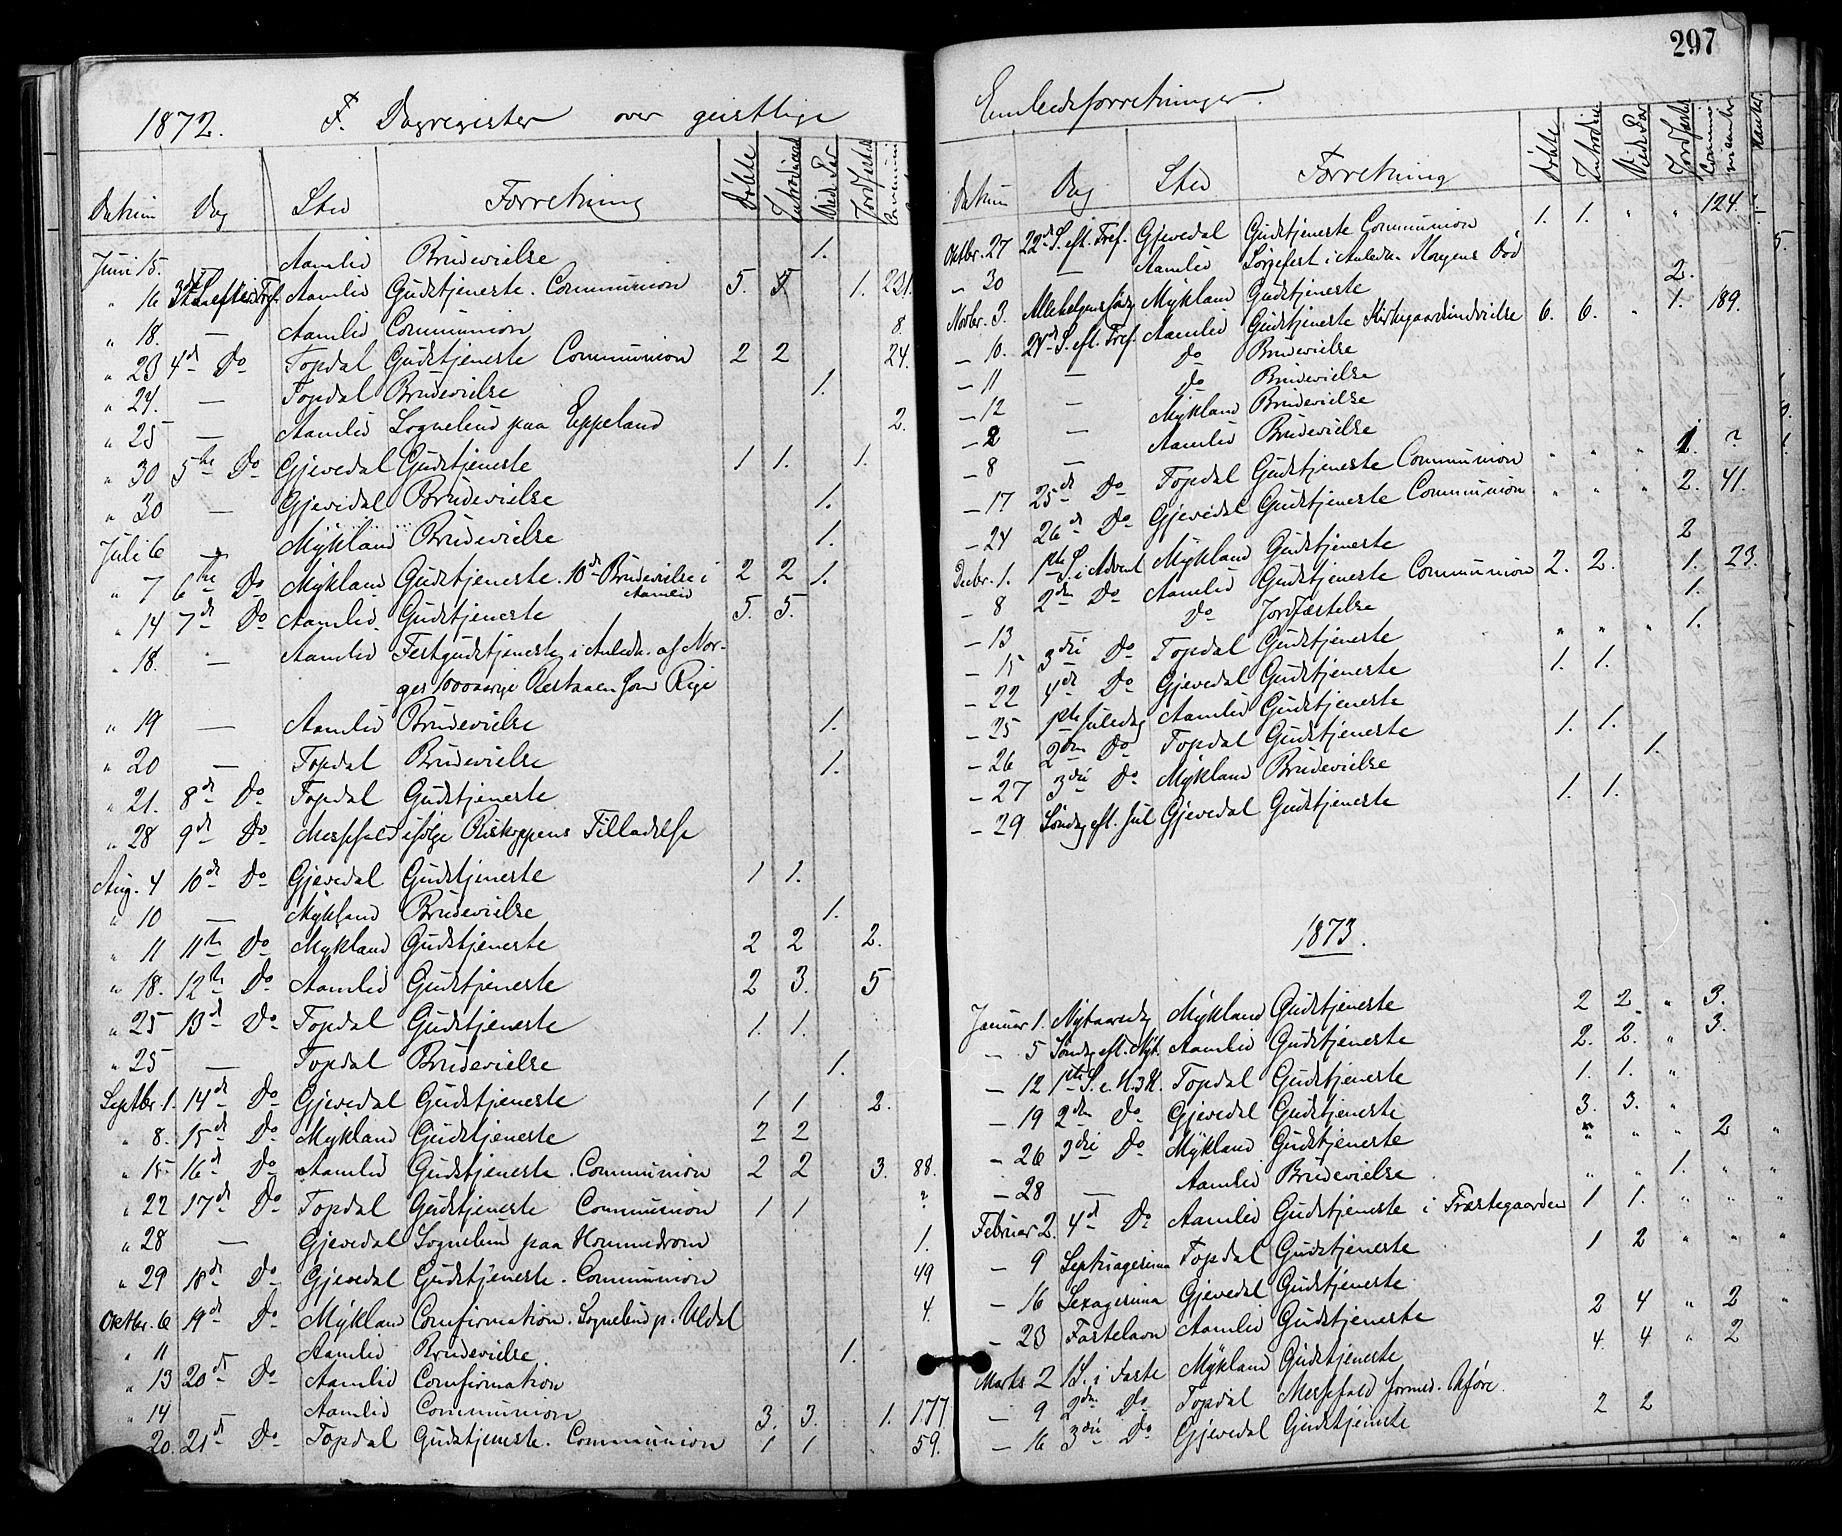 297
1872. F. Dagregister over geistlige Embedsforretninger.
Datum Dag Sted Forretning Døbte Introducerede Viede Par Jordfæstede
Juni 15. Aamlid Brudevielse 1.
" 16 3die S. efter Tref. Aamlid Gudstjeneste. Communion 5. 5 1. 231.
" 18. — Aamlid Communion 8.
" 23 4de Do Topdal Gudstjeneste Communion 2 2 24.
" 24. — Topdal Brudevielse 1.
" 25 — Aamlid Sognebud paa Eppeland 2.
" 30 5te Do Gjevedal Gudstjeneste 1 1. 1.
" 30 — Gjevedal Brudevielse 1.
Juli 6 — Mykland Brudevielse 1.
" 7 6te Do Mykland Gudstjeneste. 10de Brudevielse i Aamlid 2 2 1.
" 14 7de Do Aamlid Gudstjeneste 5. 5.
" 18. — Aamlid Festgudstjeneste i Anledn. af Nor-
ges 1000aarige Bestaaen som Rige
" 19 — Aamlid Brudevielse 1.
" 20 — Topdal Brudevielse 1.
" 21. 8de Do Topdal Gudstjeneste
" 28 9de Do Messefald ifølge Biskoppens Tilladelse
Aug. 4 10de Do Gjevedal Gudstjeneste 1 1.
" 10 — Mykland Brudevielse 1.
" 11 11te Do Mykland Gudstjeneste 2 2 2.
" 18. 12te Do Aamlid Gudstjeneste 2 3. 5
" 25 13de Do Topdal Gudstjeneste 1. 1.
" 25 — Topdal Brudevielse 1.
Septbr. 1. 14de Do Gjevedal Gudstjeneste 1 1 2.
" 8. 15de Do Mykland Gudstjeneste 2 2
" 15 16de Do Aamlid Gudstjeneste. Communion 2 2 3. 88.
" 22 17de Do Topdal Gudstjeneste Communion 1 1 ?
" 28 — Gjevedal Sognebud paa Hommedrom 1.
" 29 18de Do Gjevedal Gudstjeneste. Communion 49
Oktbr. 6 19de Do Mykland Comfirmation. Sognebud p. Uldal 4.
" 11 Aamlid Brudevielse 1.
" 13 20de Do Aamlid Comfirmation
" 14 — Aamlid Communion 3. 3. 1. 177
20. 21de Do Topdal Gudstjeneste. Communion 1 1 59.
Datum Dag Sted Forretning Døbte Introd. Viede Par Jordfæstede Communicanter
Oktbr. 27 22de S. eft. Tref. Gjevedal Gudstjeneste Communion 1. 1. " " 124.
" 30 — Aamlid Sørgefest i Anledn. Kongens Død
Novbr. 3. Allehelgensdag Mykland Gudstjeneste 2.
— 10. 24de S. eft. Tref. Aamlid Gudstjeneste Kirkegaardsindvielse 6. 6. " 1. 189.
— 11 — do Brudevielse
— 12 — do Brudevielse
— 2 — Mykland Brudevielse
— 8 — Aamlid Brudevielse
— 17 25de Do Topdal Gudstjeneste Communion " " " 1. ?
— 24 26de Do Gjevedal Gudstjeneste Communion " " " 2. 41.
Decbr. 1. 1ste S. i Advent Mykland Gudstjeneste 2
— 8 2den Do Aamlid Gudstjeneste Communion 2. 2. 1. 23.
— 13 do Jordfæstelse 1.
— 15 3die Do Topdal Gudstjeneste " " " 1.
— 22 4de Do Gjevedal Gudstjeneste 1. 1.
— 25 1ste Juledag Aamlid Gudstjeneste
— 26 2den Do Topdal Gudstjeneste 1. 1.
— 27 3die Do Mykland Brudevielse 1.
— 29 Søndag eft. Jul Gjevedal Gudstjeneste 1. 1.
1873.
Januar 1. Nytaarsdag Mykland Gudstjeneste 2 2 " 3.
— 5 Søndag eft. Nyt. Aamlid Gudstjeneste 2. 2. " 3.
— 12 1ste S. e. H.3.K. Topdal Gudstjeneste 1. 1. "
— 19 2den Do Gjevedal Gudstjeneste 3. 3. "
— 26 3die Do Mykland Gudstjeneste " " " 2 "
— 28 — Aamlid Brudevielse " " 1. " "
Februar 2. 4de Do Aamlid Gudstjeneste i Præstegaarden 1 1. " " "
— 9 Septuagesima Topdal Gudstjeneste 1 2 " " "
— 16 Sexagesima Gjevedal Gudstjeneste
— 23 Fastelavn Aamlid Gudstjeneste 2 4 " 2 "
Marts 2 1 S. i Faste Mykland Gudstjeneste 4. 4 " 2
— 9 2den Do Topdal Messefald formed. Uføre.
— 16 3die Do Gjevedal Gudstjeneste 2 2